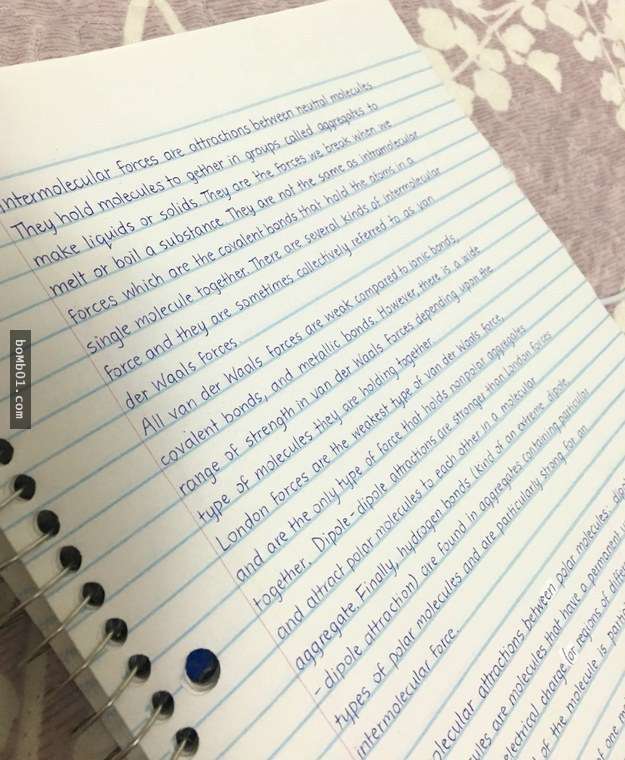 intermolecular forces are attractions between neutral molecules.
They hold molecules to gether in groups called aggregates to
make liquids or solids. They are the forces we break when we
melt or boil a substance. They are not the same as intramolecular
forces which are the covalent bonds that hold the atoms in a
single molecule together. There are several kinds of intermolecular
force and they are sometimes collectively referred to as van
der Waals forces.
All van der Waals forces are weak compared to ionic bonds,
covalent bonds, and metallic bonds. However, there is a wide
range of strength in van der Waals forces depending upon the
type of molecules they are holding together.
London forces are the weakest type of van der Waals force,
and are the only type of force that holds nonpolar aggregates
together. Dipole-dipole attractions are stronger than London forces
and attract polar molecules to each other in a molecular
aggregate. Finally, hydrogen bonds (kind of an extreme dipole
-dipole attraction) are found in aggregates containing particular
types of polar molecules and are particularly strong for an
intermolecular force.
attractions between polar molecules.
are molecules that have a permanent
electrical charge for regions of
of the molecule is
of one
boMb01.com